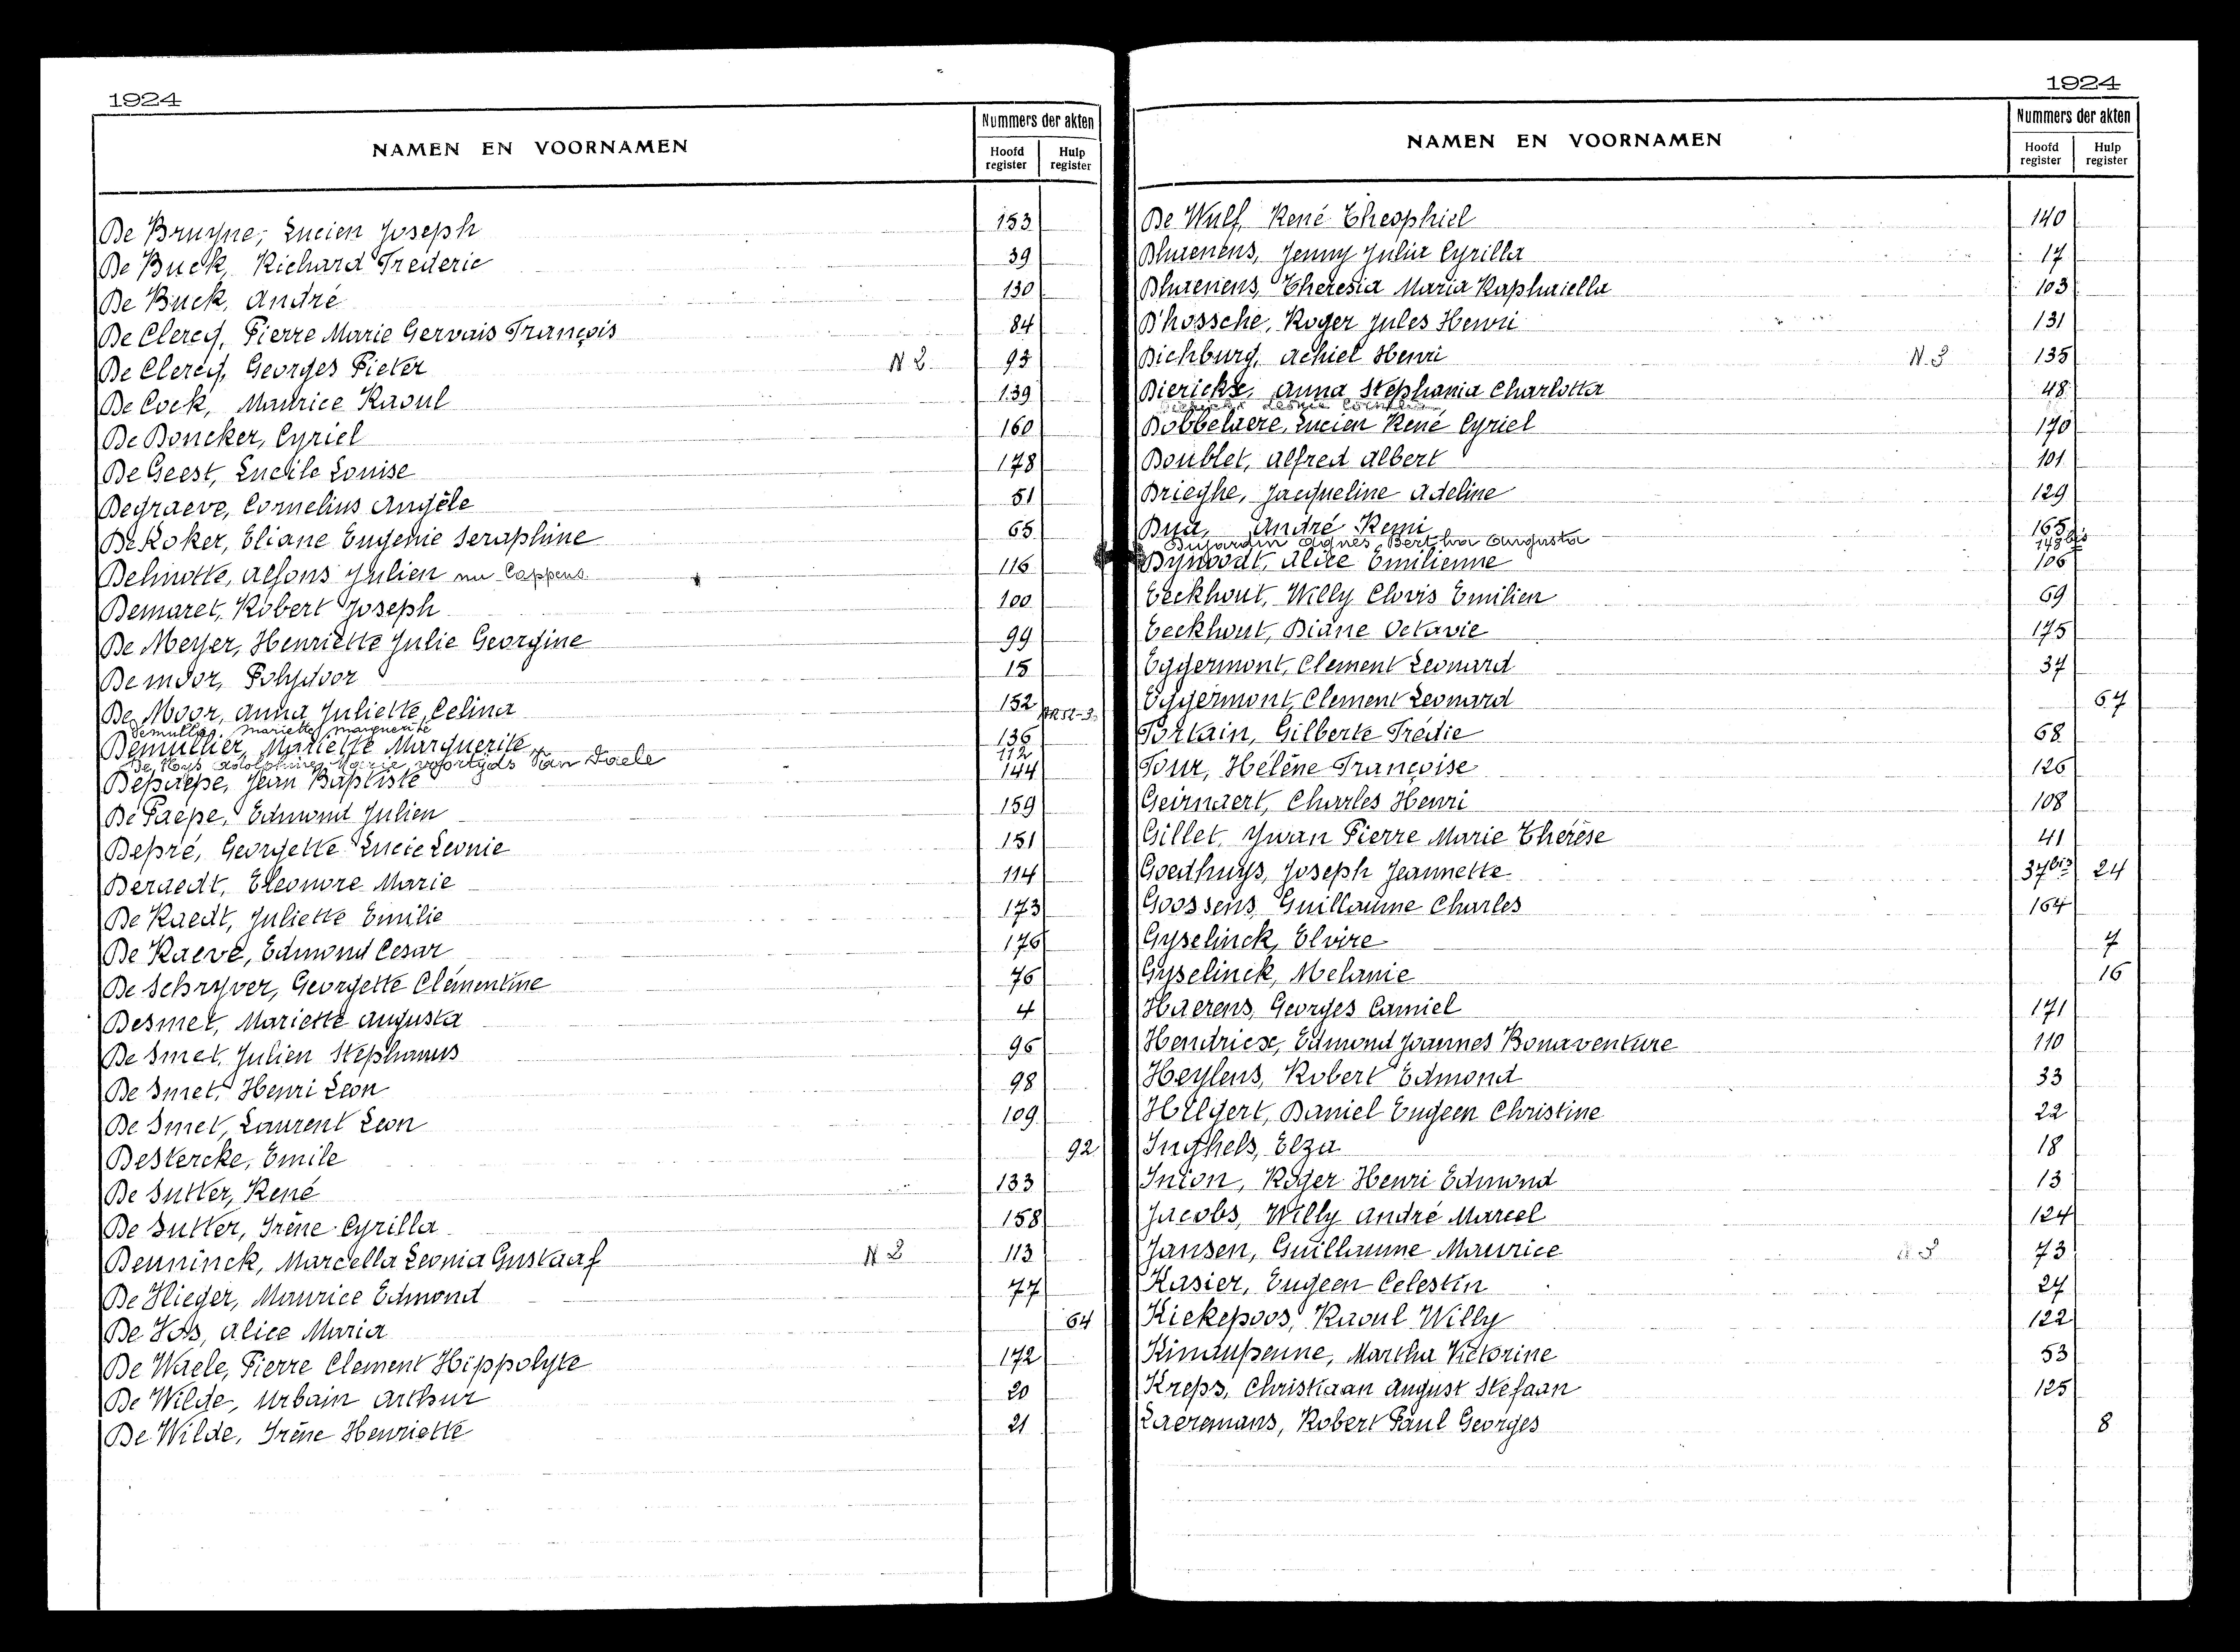 1924
NAMEN EN VOORNAMEN
Nummers der akten
Hoofd register
Hulp register
De Bruyne, Lucien Joseph 153
De Buck, Richard Frederic 39
De Buck, André 130
De Clercq, Pierre Marie Gervais François 84
De Clercq, Georges Pieter N 2. 93
De Cock, Maurice Raoul 139
De Doncker, Cyriel 160
De Geest, Lucile Louise 178
Degraeve, Cornelius Angèle 51
De Koker, Eliane Eugenie Seraphine 65
Delmotte, Alfons Julien nu Cappens 116
Demaret, Robert Joseph 100
De Meyer, Henriette Julie Georgine 99
De moor, Polydoor 15
De Moor, Anna Juliette Celina 152
Demullier Mariette Marguerite
Demullier, Mariette Marguerite 136
Adolphine Marie, voortijds Van Daele 112
Depaepe, Jean Baptiste 144
De Paepe, Edmond Julien 159
Depré, Georgette Lucie Leonie 151
Deraedt, Eleonore Marie 114
De Raedt, Juliette Emilie 173
De Raeve, Edmond Cesar 176
De Schryver, Georgette Clémentine 76
Desmet, Mariette Augusta 4
De Smet, Julien Stephanus 96
De Smet, Henri Leon 98
De Smet, Laurent Leon 109
Destercke, Emile 92
De Sutter, René 133
De Sutter, Irène Cyrilla 158
Deuninck, Marcella Leonia Gustaaf N 2 113
De Vlieger, Maurice Edmond 77
De Vos, Alice Maria 64
De Waele, Pierre Clement Hippolyte 172
De Wilde, Urbain Arthur 20
De Wilde, Irène Henriette 21
1924
NAMEN EN VOORNAMEN
Nummers der akten
Hoofd register
Hulp register
De Wulf, René Theophiel 140
Dhaenens, Jenny Julia Cyrilla 17
Dhaenens, Theresia Maria Raphaiella 103
D'hossche, Roger Jules Henri 131
Dichburg, Achiel Henri N. 3 135
Diericks, Anna Stephania Charlotta 48
Dobbelaere, Lucien René Cyriel 170
Doublet, Alfred Albert 101
Drieghe, Jacqueline Adeline 129
Dua, André Remi 165
Dujardin Agnes Bertha Augusta 148bis
Dynoodt, Alice Emilienne 106
Eeckhout, Willy Clovis Emilien 69
Eeckhout, Diane Octavie 175
Eggermont, Clement Leonard 37
Eggermont, Clement Leonard 67
Fortain, Gilberte Frédie 68
Four, Hélène Françoise 126
Geirnaert, Charles Henri 108
Gillet, Ywan Pierre Marie Thérèse 41
Goedhuys, Joseph Jeannette 37bis 24
Goossens, Guillaume Charles 164
Gyselinck, Elvire 7
Gyselinck, Melanie 16
Haerens, Georges Camiel 171
Hendricse, Edmond Joannes Bonaventure 110
Heylens, Robert Edmond 33
Hilgert, Daniel Eugeen Christine 22
Inghels, Elza 18
Inion, Roger Henri Edmond 13
Jacobs, Willy André Marcel 124
Jansen, Guillaume Maurice 73
Kasier, Eugeen Celestin 27
Kiekepoos, Raoul Willy 122
Kindupenne, Martha Victorine 53
Kreps, Christiaan August Stefaan 125
Laeremans, Robert Paul Georges 8